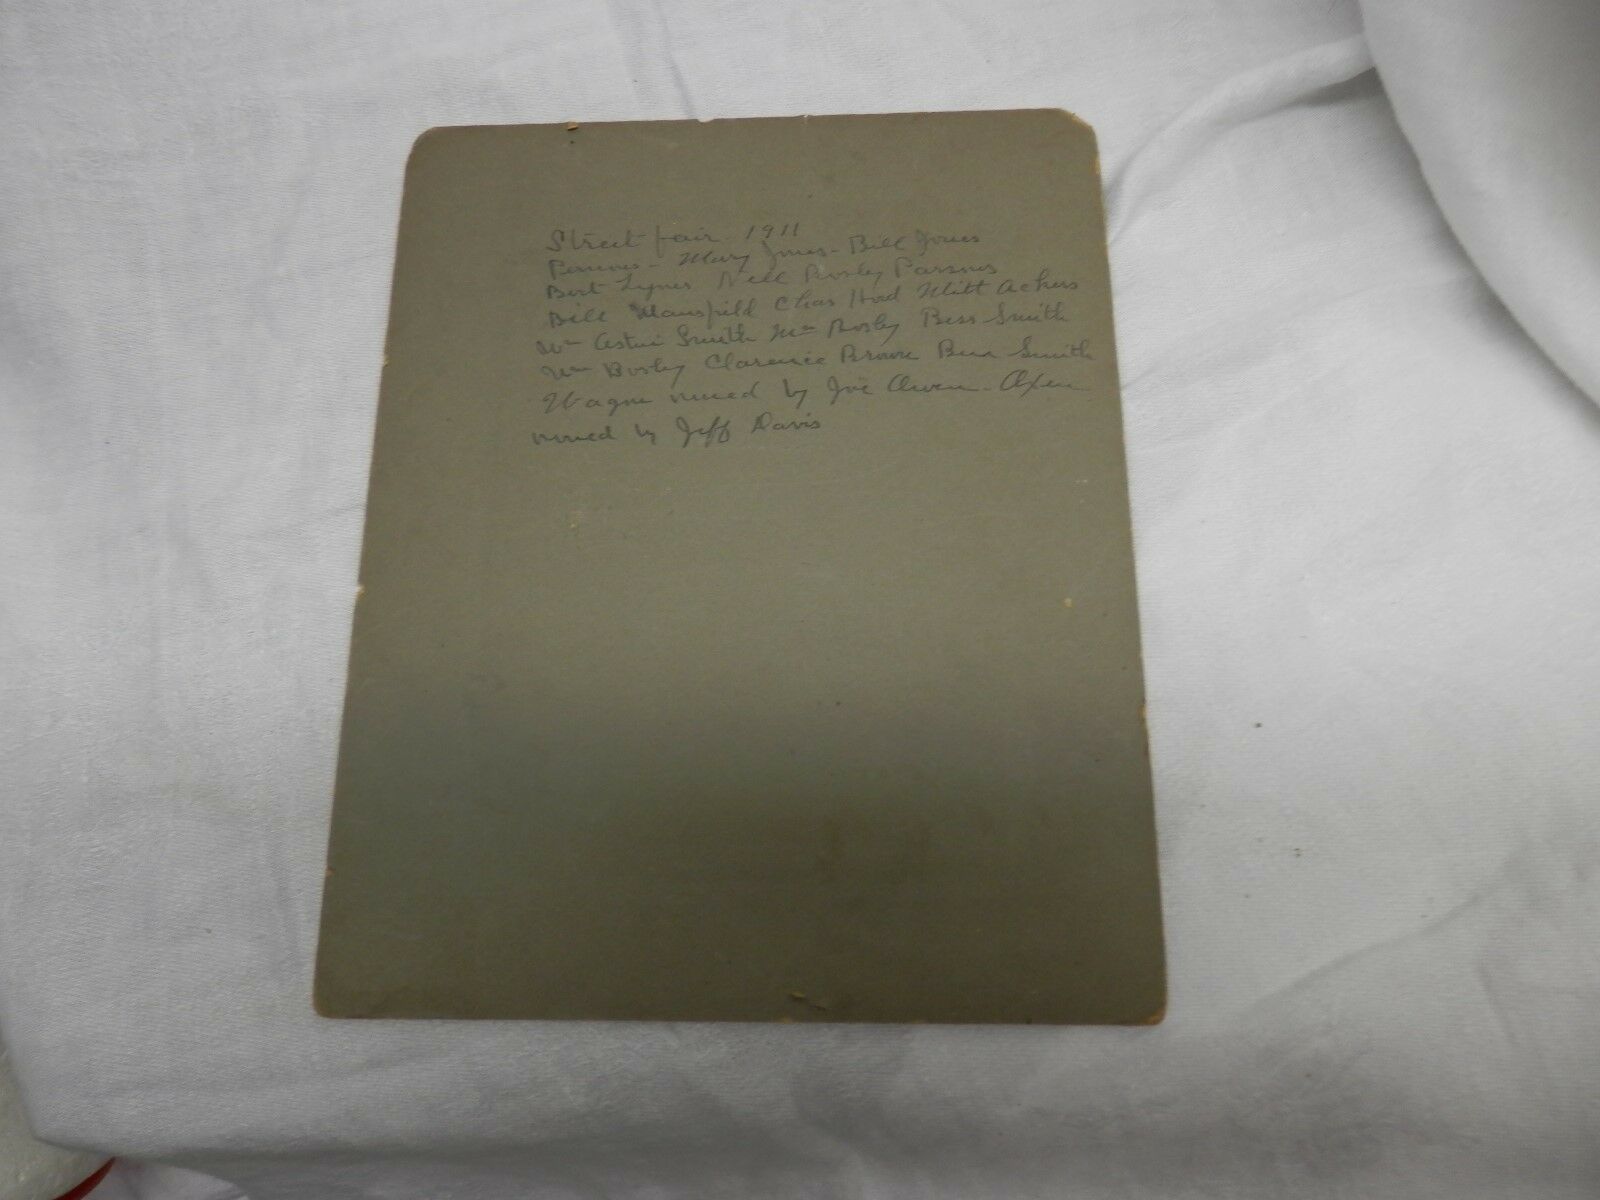 Street fair - 1911
Persons - Mary Jones - Bill Jones
Bert Lynes Nell Bosley Parsons
Bill Mansfield Chas Hord Milt Ackers
Wm Smith Wm Bosley Bess Smith
Wm Bosley Clarence Brown Ben Smith
Wagon owned by Joe Owen - Oxen
owned by Jeff Davis